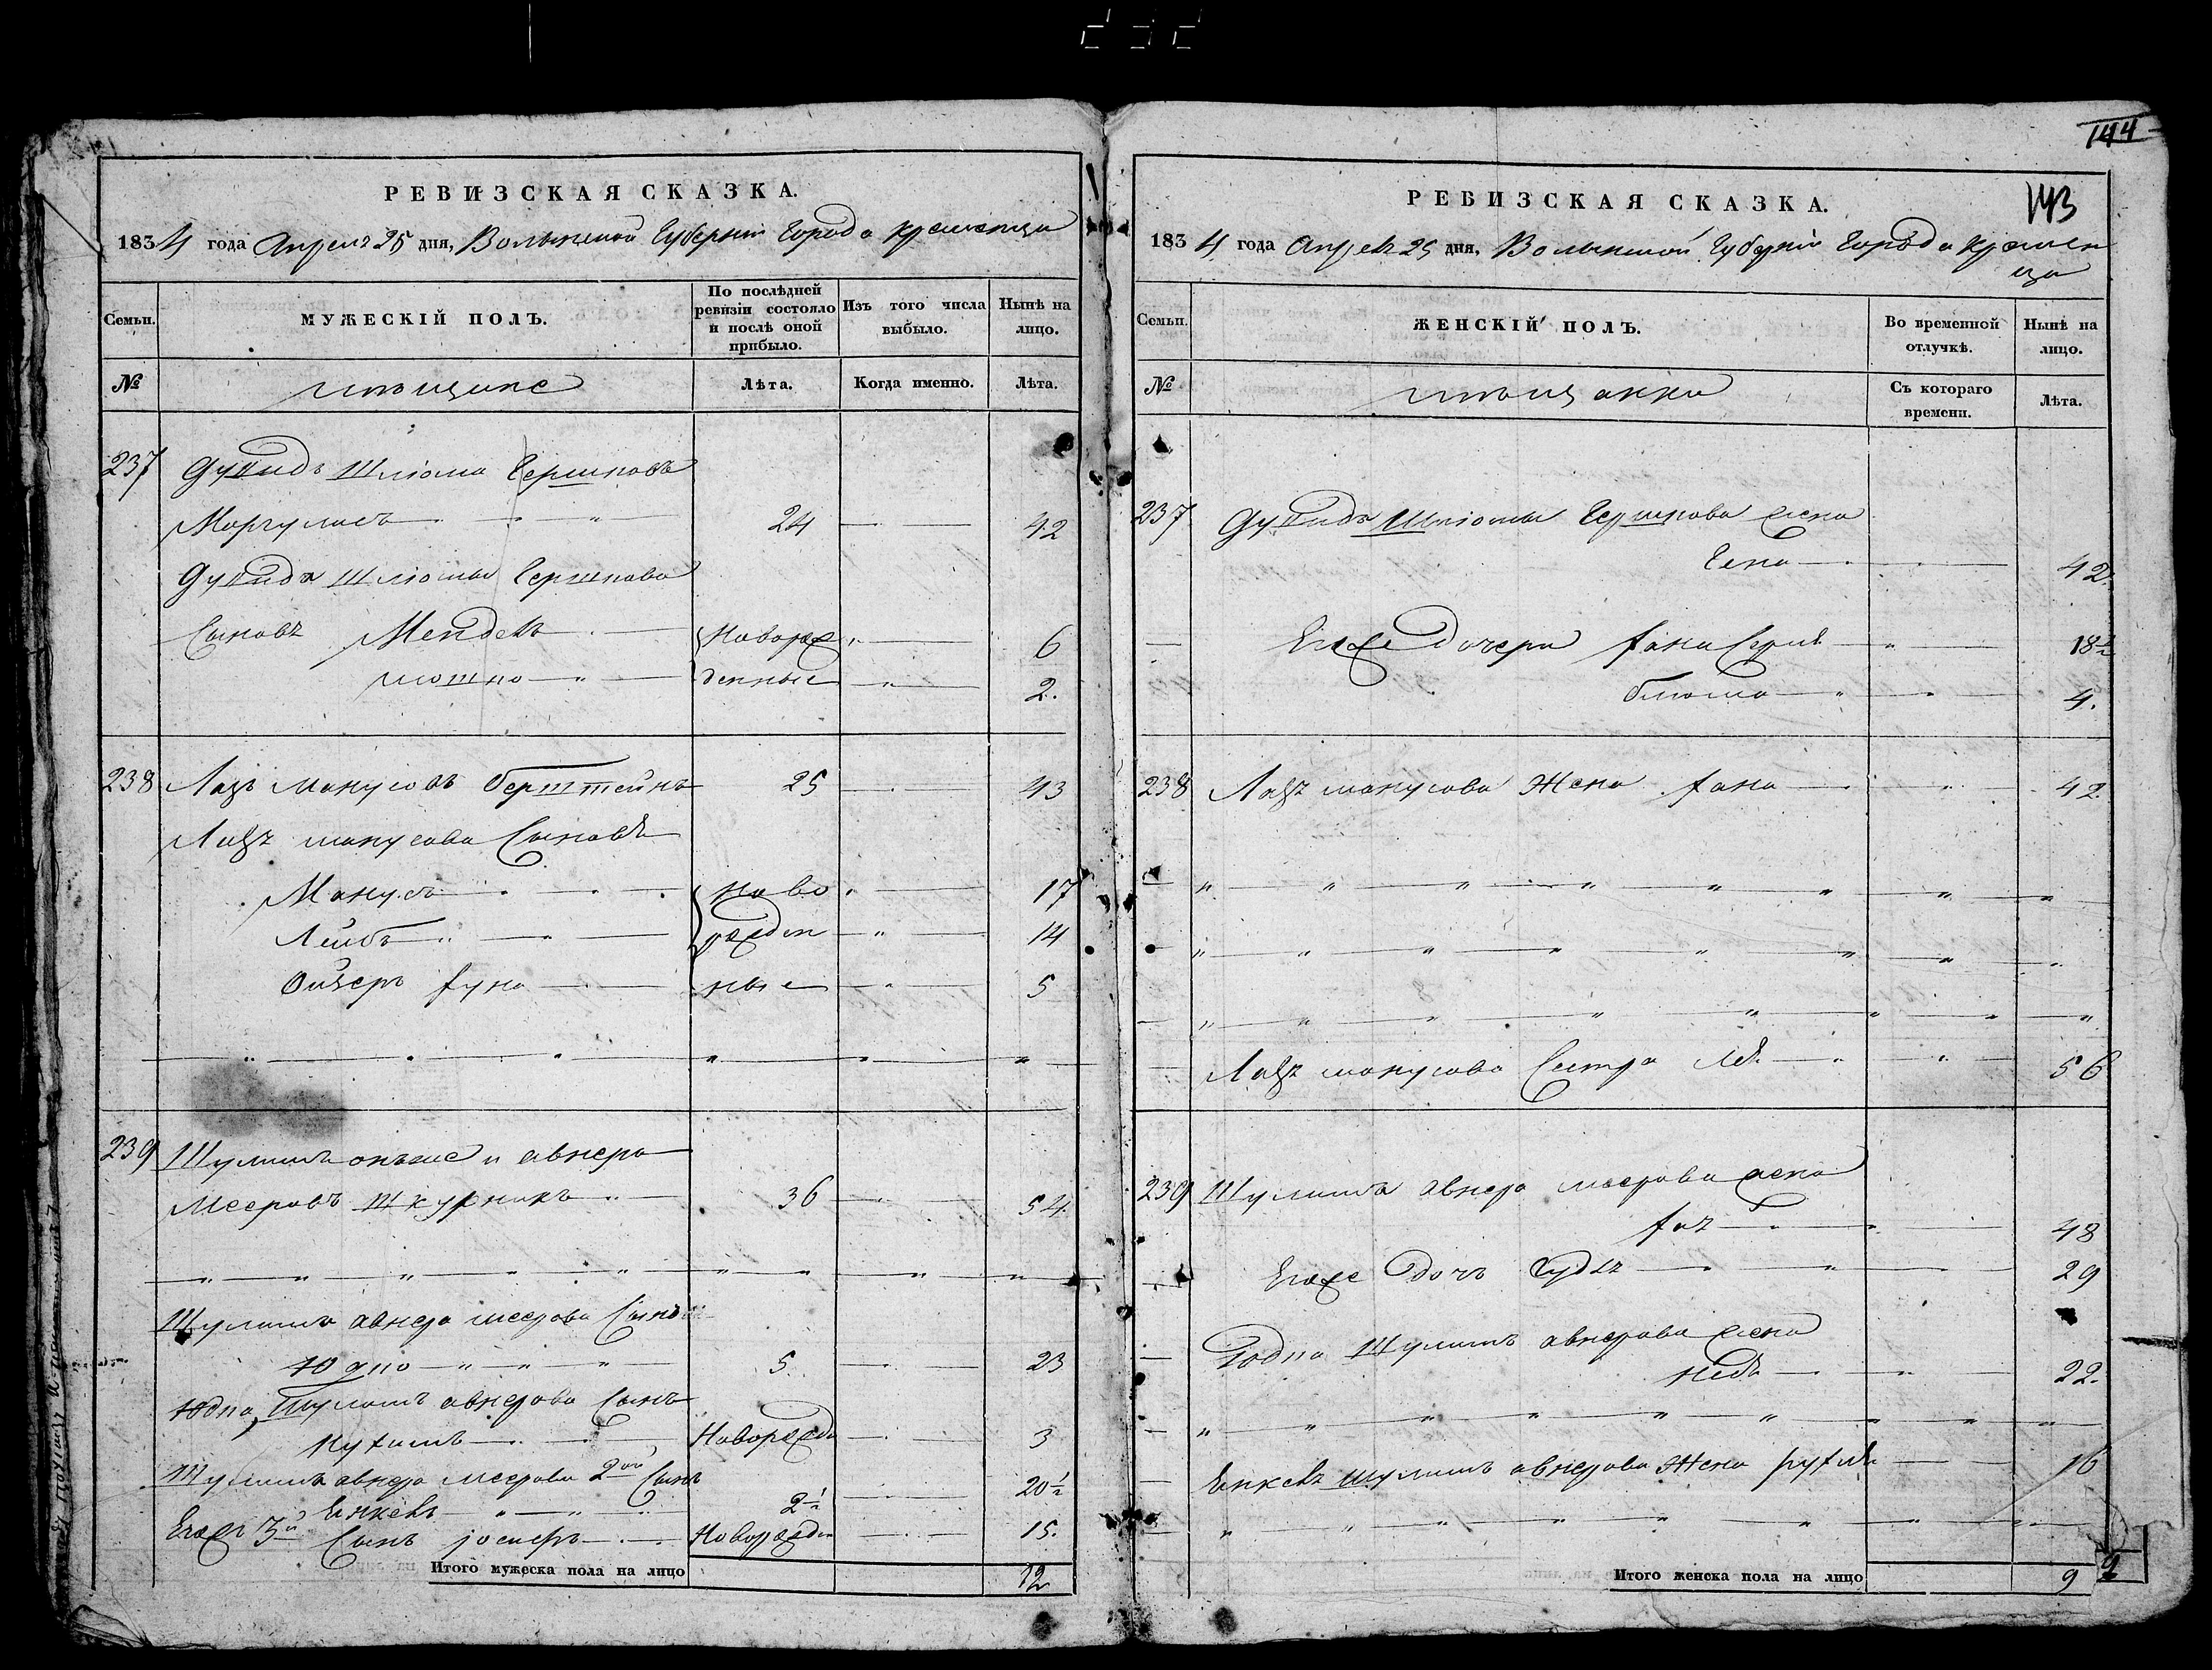 144
РЕВИЗСКАЯ СКАЗКА.
1834 года Апреля 25 дня, Волынской Губернии Города Кременца
Семьи.
МУЖЕСКІЙ ПОЛЪ.
По послѣдней ревизіи состояло и послѣ оной прибыло.
Изъ того числа выбыло.
Нынѣ на лицо.
№
мѣщане
Лѣта.
Когда именно.
Лѣта.
237 Шлiома Гершковъ
Маргулисъ 24 42
Шлiомы Гершкова
Сыновъ Мендель Новорож 6
мошко денные 2.
238 Лазъ Манусовъ берштейнъ 25 43
Лазъ манусова Сыновѣ
Манусъ ново 17
Лейбъ рожден 14
Ойзеръ ные 5
239 Шулимъ онъже и авнеръ
Мееровъ шкурникъ 36 54
Шулима авнера меерова Сынъ
Юдко 5. 23
Юдка Шулимъ авнерова Сынъ
Нухимъ Новорожде 3
Шулима авнера меерова 2ой Сынъ
Янкель 2½ 20½
Егоже 3й Сынъ іосифъ Новорожден 15.
Итого мужеска пола на лицо 12
143
РЕВИЗСКАЯ СКАЗКА.
1834 года Апреля 25 дня, Волынской Губерніи Города Кремен
ца
Семьи.
ЖЕНСКІЙ ПОЛЪ.
Во временной отлучкѣ.
Нынѣ на лицо.
№
мѣщанки
Съ котораго времени.
Лѣта.
237 Шлiомы Гершкова жена
Гена 42.
Егоже дочери 18½
блюма 4.
238 Лазъ манусова Жена хана 42.
Лазъ манусова Сестра 56
239 Шулима авнера меерова жена
48
Егоже дочъ 29
Юдка Шулимъ авнерова жена
22.
Янкель шулимъ авнерова Жена рухля 16
Итого женска пола на лицо 9